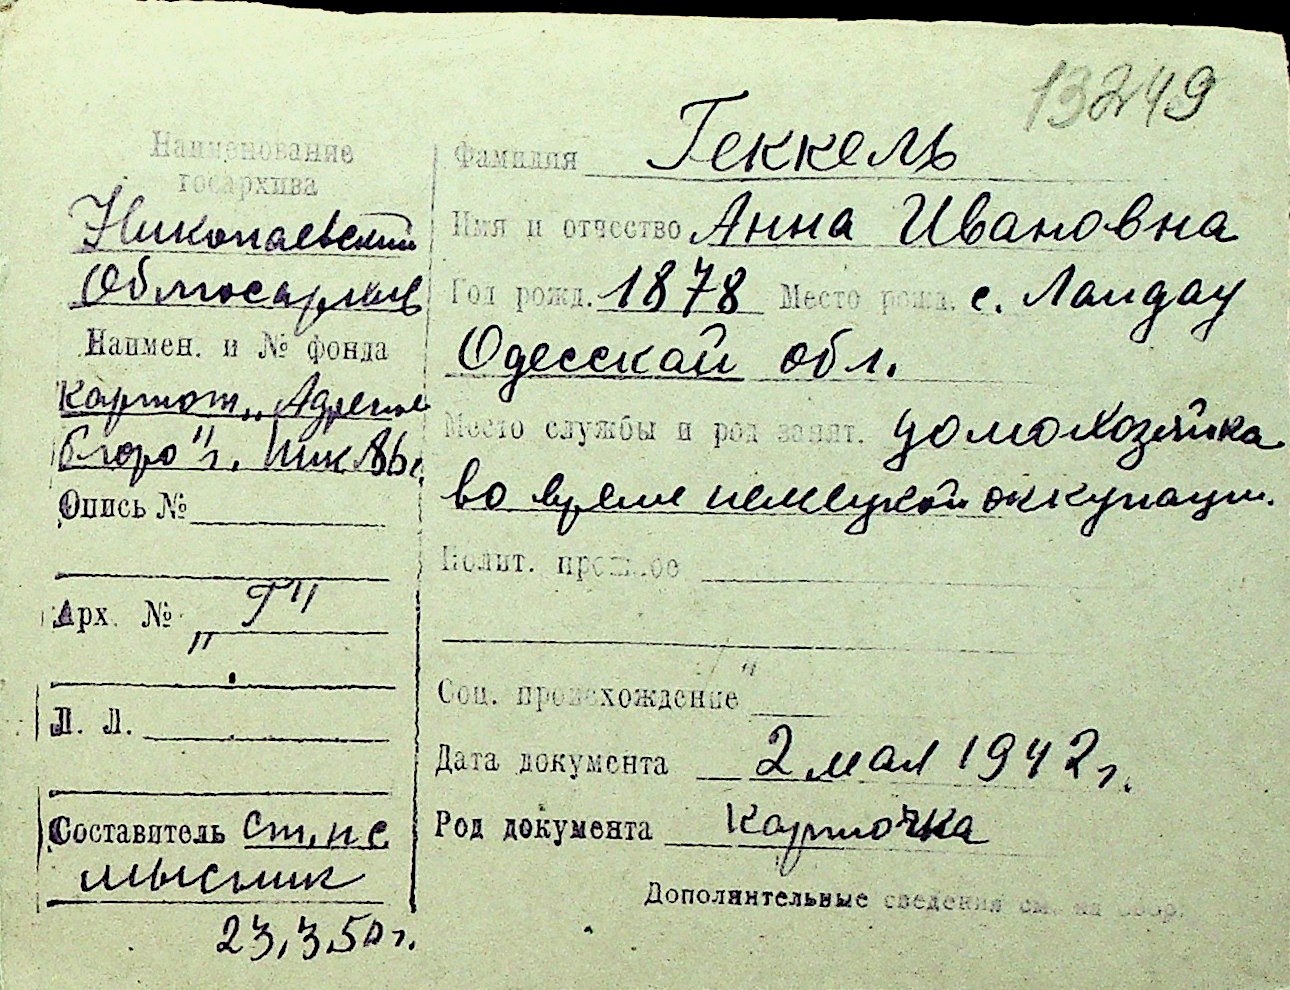 13249
Наименование
госархива
Николаевский
Облгосархив
Наимен. и № фонда
картот. „Адресное
бюро" г.
Опись №
Арх. № „Г"
Л. Л.
Составитель ст. н с
Мысник
23.3.50 г.
Фамилия Геккель
Имя и отчество Анна Ивановна
Год рожд. 1878 Место рожд. с. Ландау
Одесской обл.
Место службы и род занят. домохозяйка
во время немецкой оккупации.
Полит. прошлое
Соц. происхождение
Дата документа 2 мая 1942 г.
Род документа Карточка
Дополнительные сведения см. на обор.